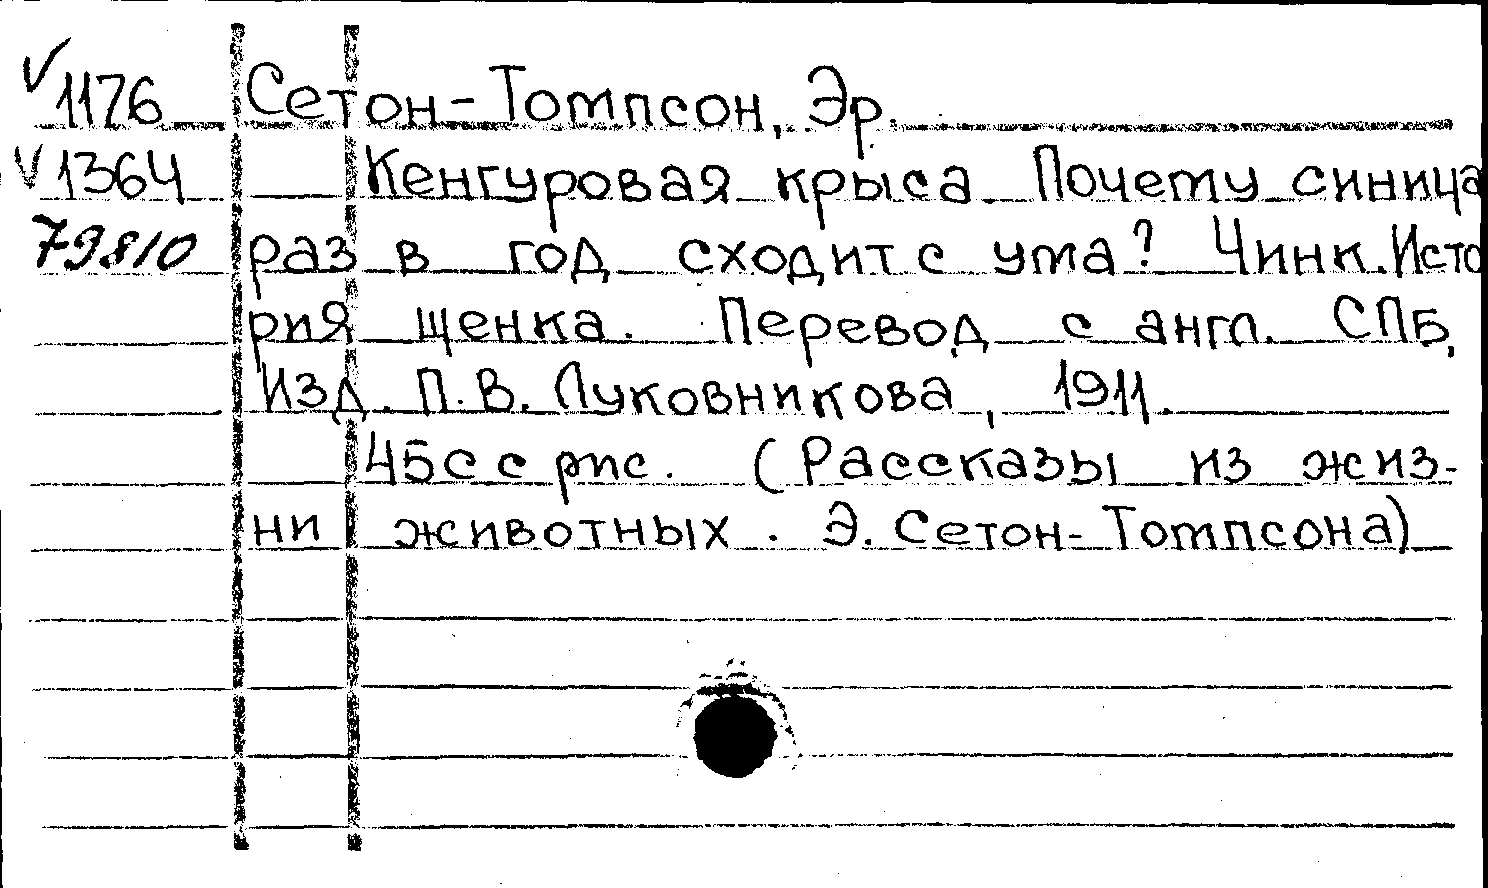 √1176 Сетон-Томпсон, Эр.
√1364 Кенгуровая крыса. Почему синица
79810 раз в год сходит с ума? Чинк. Исто
рия щенка. Перевод с англ. СПБ,
Изд. П.В. Луковникова, 1911.
45с с рис. (Рассказы из жиз-
ни животных. Э. Сетон-Томпсона)